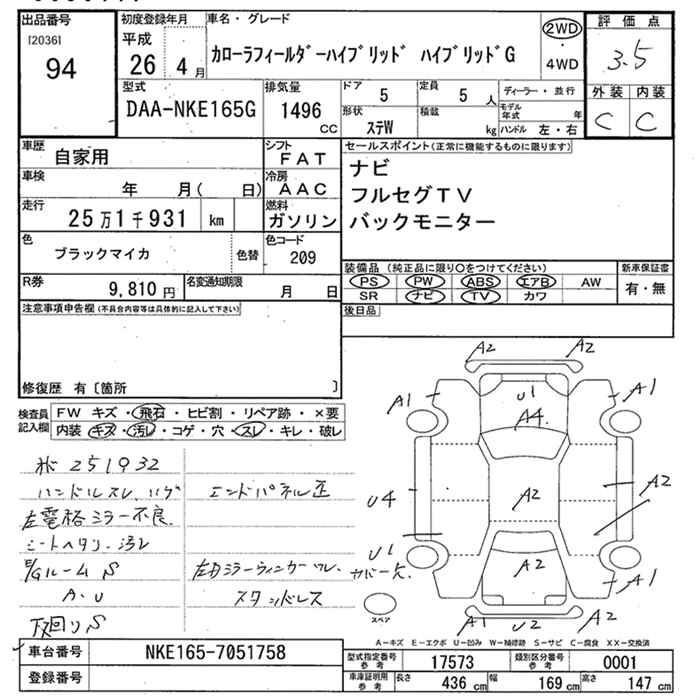 出品番号
[2036]
94
初度登録年月
平成
26年 4月
車名・グレード
カローラフィールダーハイブリッド ハイブリッドG
2WD
・
4WD
評価点
3.5
外装 内装
C C
型式
DAA-NKE165G
排気量
1496
CC
ドア
5
定員
5 人
ディーラー・並行
形状
ステW
積載
kg
モデル年式 年
ハンドル 左・右
車歴
自家用
シフト
FAT
車検
年 月( 日)
冷房
AAC
走行
25万1千931 km
燃料
ガソリン
色
ブラックマイカ
色替
色コード
209
R券
9,810 円
名変通知期限
月 日
セールスポイント(正常に機能するものに限ります)
ナビ
フルセグTV
バックモニター
装備品 (純正品に限り○をつけてください)
新車保証書
PS PW ABS エアB AW
SR ナビ TV カワ
有・無
後日品
注意事項申告欄(不具合内容等は具体的に記入して下さい)
修復歴 有〔箇所 〕
検査員記入欄
FW キズ・飛石・ヒビ割・リペア跡・×要
内装 キズ・汚レ・コゲ・穴・スレ・キレ・破レ
251932
ハンドルスレ、ハゲ
エンドパネル歪
左電格ミラー不良.
シートヘタリ・汚レ
E/Gルーム S
左右ミラーウィンカーワレ
カバー欠
A・U
スタンドレス
下回り S
A2 A2
A1 U1 A1
A4
U4 A2 A2
U1 A2 A1
A1 U2 A2
スペア
A-キズ E-エクボ U-凹み W-補修跡 S-サビ C-腐食 XX-交換済
車台番号
NKE165-7051758
登録番号
型式指定番号
参考
17573
類別区分番号
参考
0001
車庫証明用
参考
長さ 436 cm
幅 169 cm
高さ 147 cm